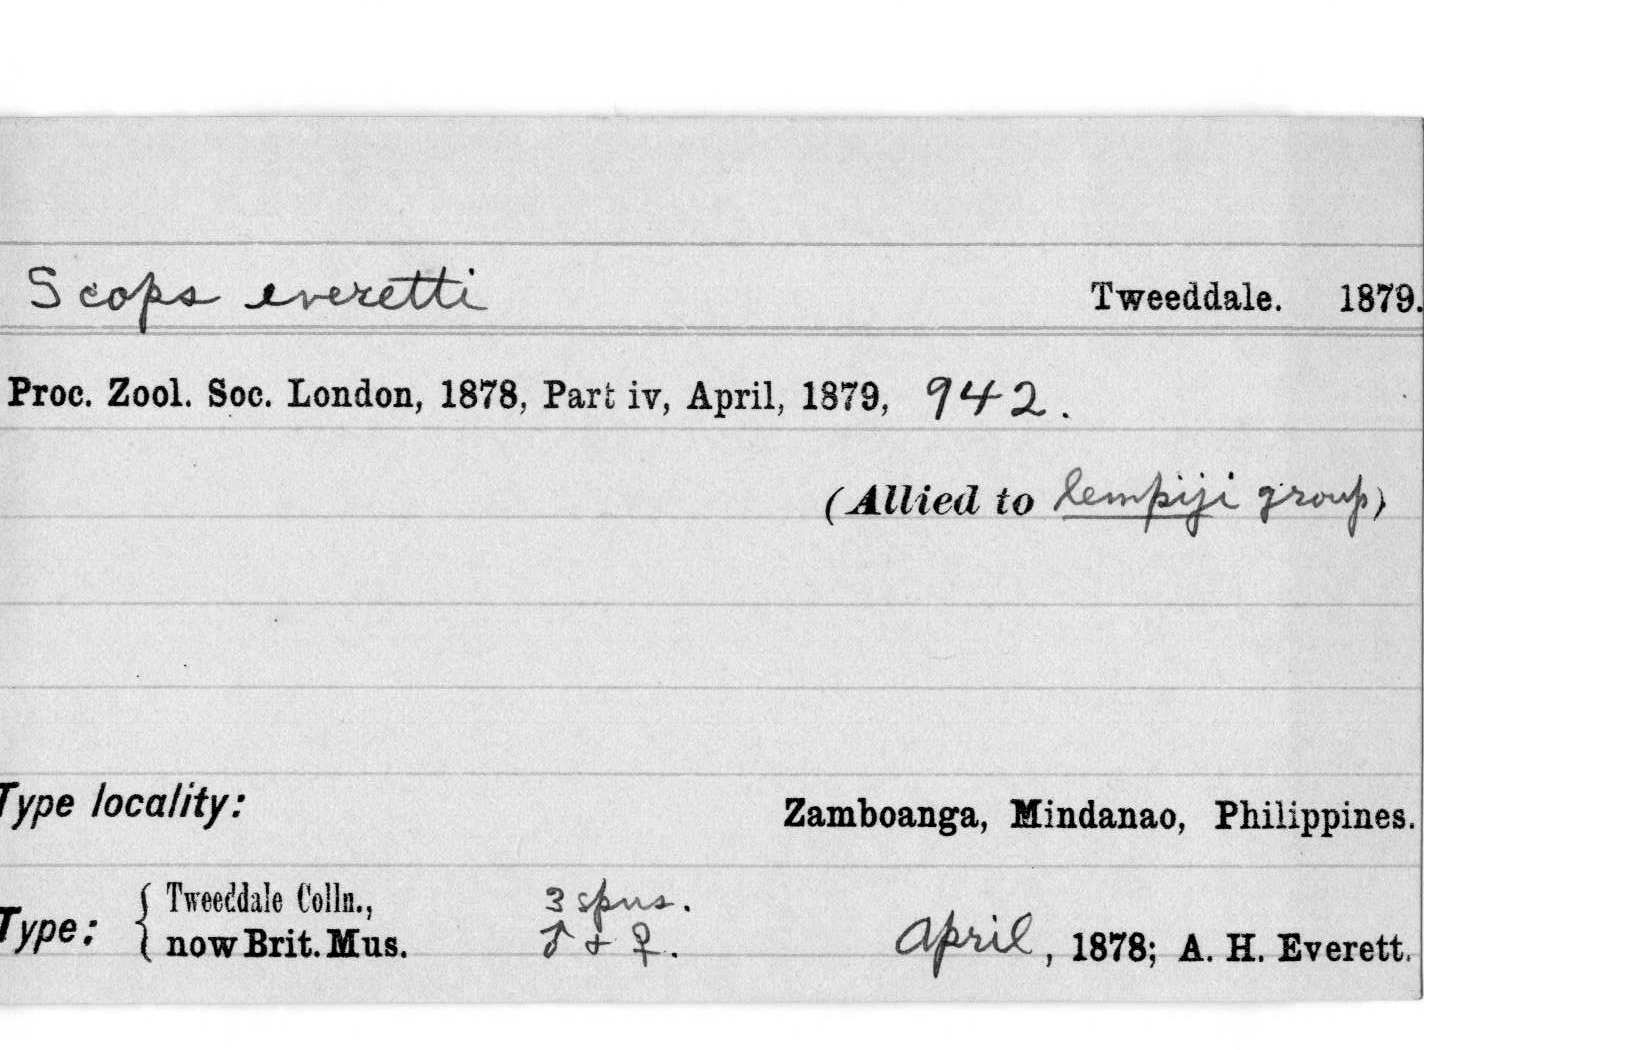 Scops everetti Tweeddale. 1879.
Proc. Zool. Soc. London, 1878, Part iv, April, 1879, 942.
(Allied to lempiji group)
Type locality: Zamboanga, Mindanao, Philippines.
Tweeddale Colln., 3 spns.
Type: { now Brit. Mus. ♂ + ♀. April, 1878; A. H. Everett.